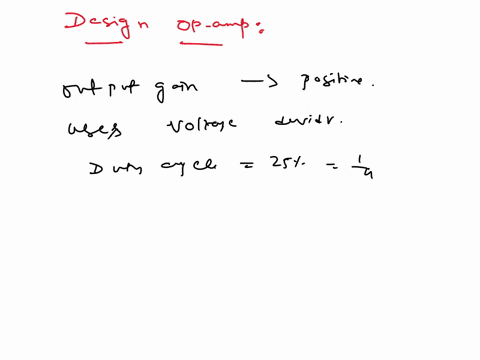 Design op-amp:
output gain → positive.
uses voltage devidr.
Duty cycle = 25% = 1/4